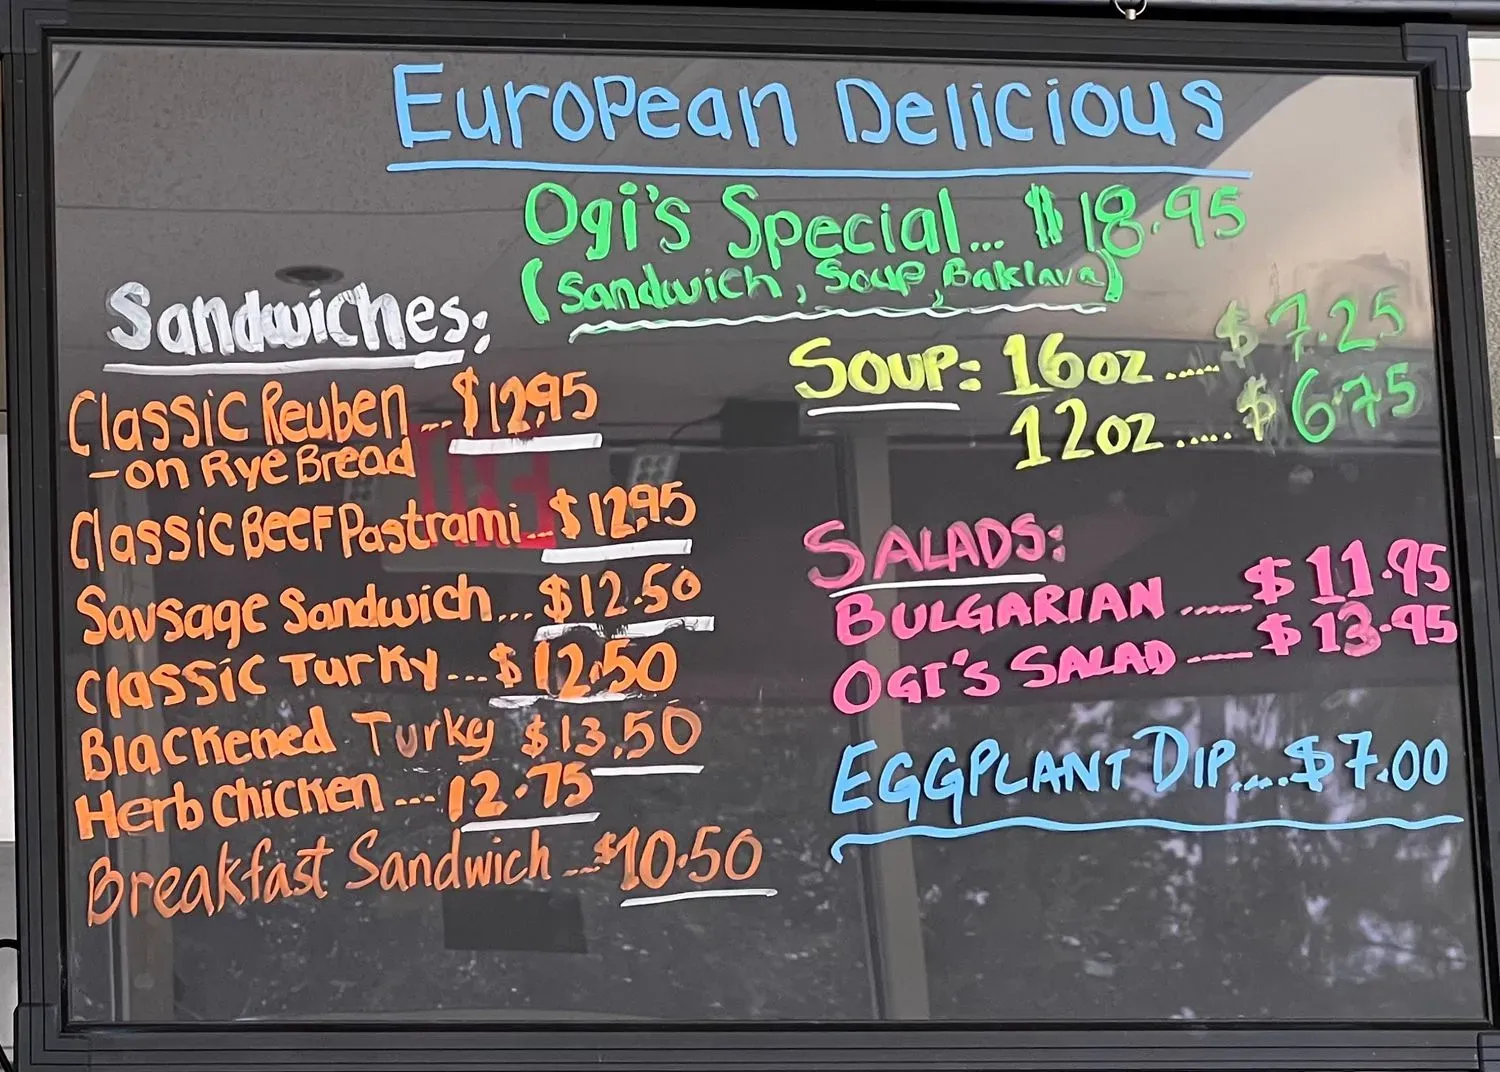 European Delicious
Ogi's Special... $18.95
(Sandwich, Soup, Baklava)
Sandwiches:
Classic Reuben... $12.95
-on Rye Bread
Classic BEEF Pastrami... $12.95
Sausage Sandwich... $12.50
Classic Turky... $12.50
Blackened Turky $13.50
Herb Chicken... 12.75
Breakfast Sandwich... $10.50
SOUP: 16oz ..... $7.25
12oz ..... $6.75
SALADS:
BULGARIAN ...... $11.95
OGI'S SALAD ..... $13.95
EGGPLANT DIP.... $7.00